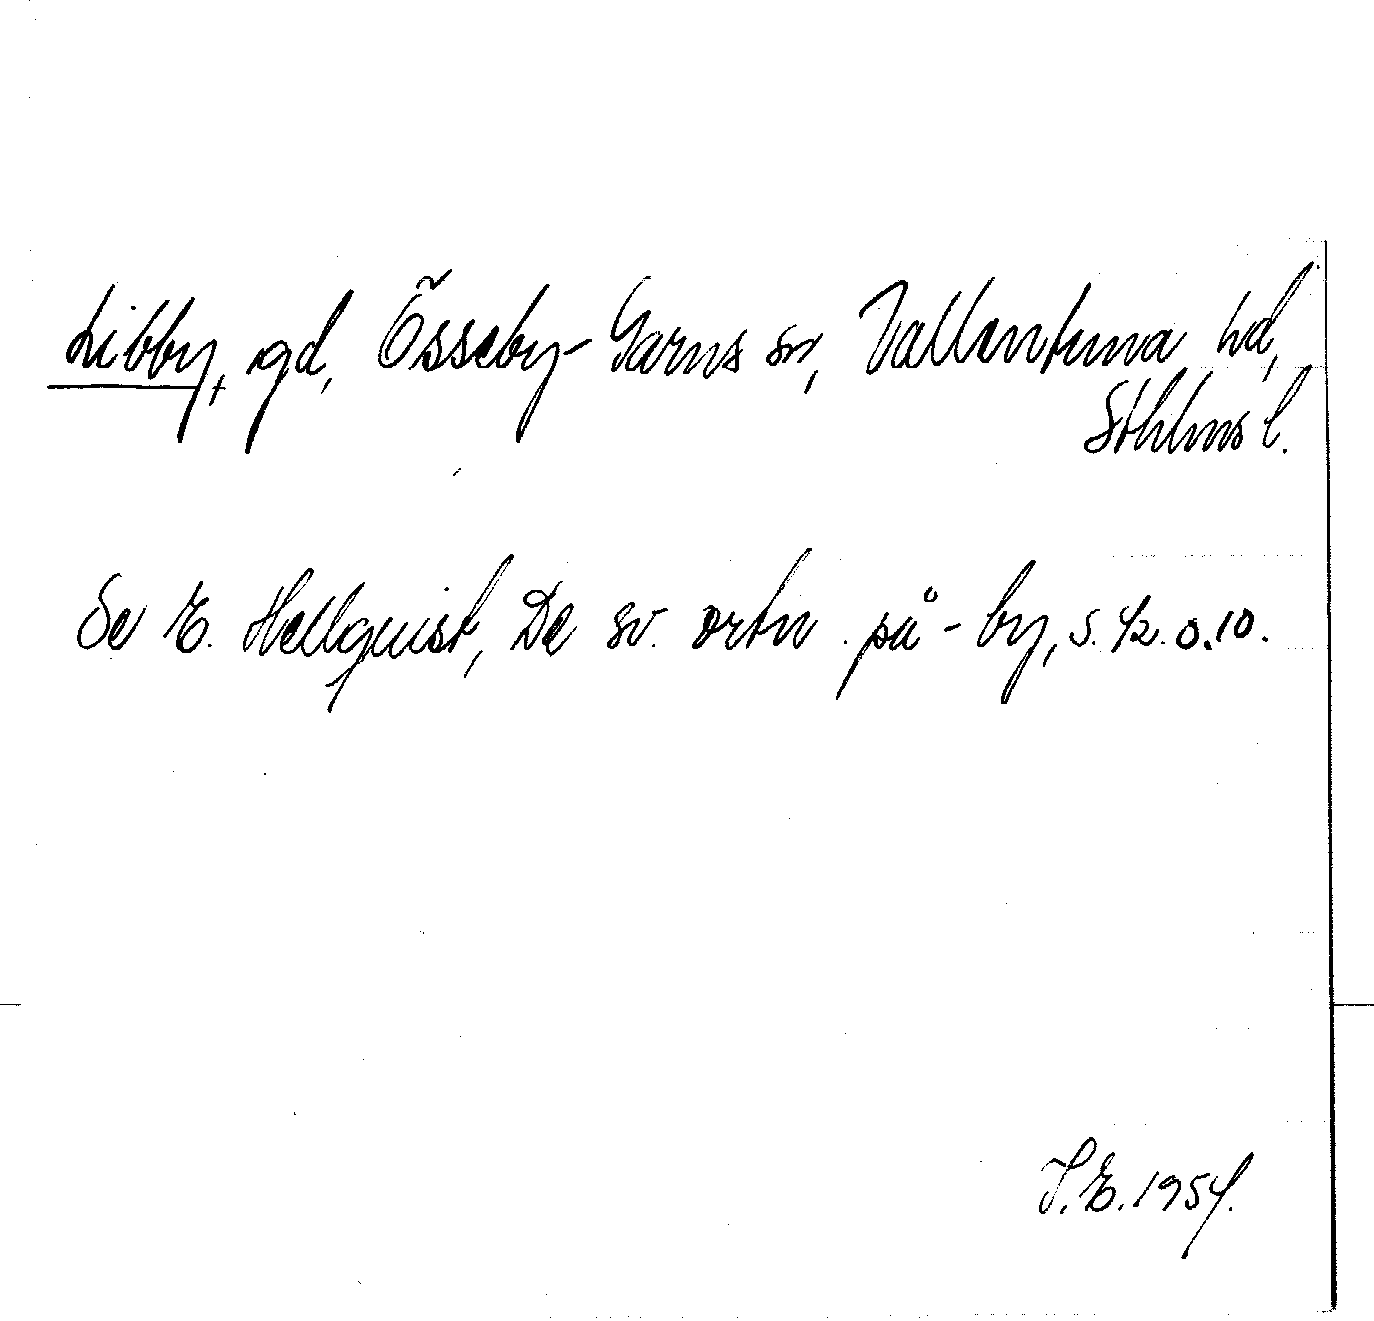 Libby, gd, Össeby-Garns sn, Vallentuna hd,
Sthlms l.
Se E. Hellquist, De sv. ortn. på -by, s. 42. o. 10.
I.E. 1954.